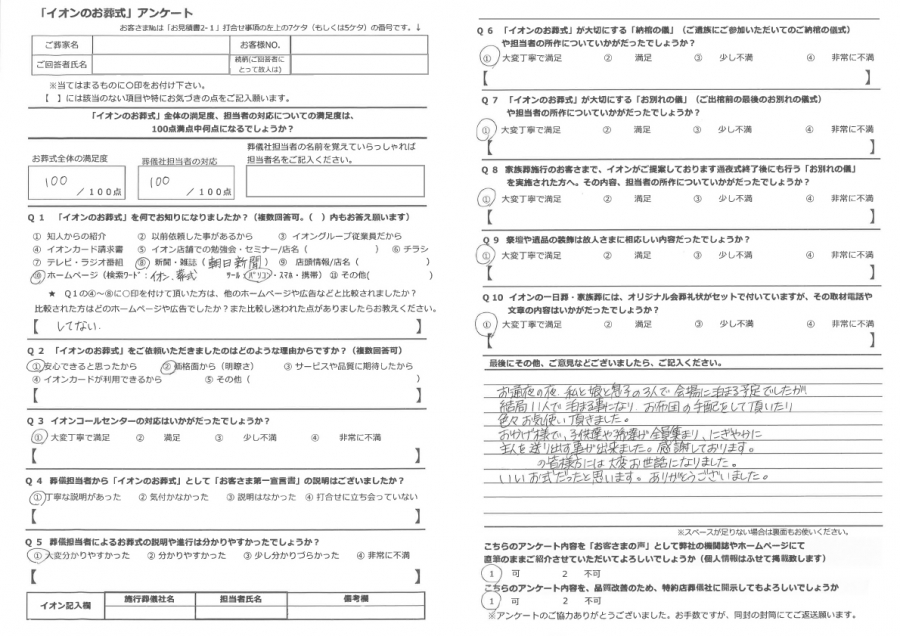 「イオンのお葬式」アンケート
お客さま№は「お見積書2-1」打合せ事項の左上の7ケタ（もしくは5ケタ）の番号です。↓
ご葬家名 お客様NO.
ご回答者氏名 続柄(ご回答者にとって故人は)
※当てはまるものに〇印をお付け下さい。
【　】には該当のない項目や特にお気づきの点をご記入願います。
「イオンのお葬式」全体の満足度、担当者の対応についての満足度は、
100点満点中何点になるでしょうか？
お葬式全体の満足度 葬儀社担当者の対応 葬儀社担当者の名前を覚えていらっしゃれば
担当者名をご記入ください。
100 ／100点 100 ／100点
Q 1 「イオンのお葬式」を何でお知りになりましたか？（複数回答可。（ ）内もお答え願います）
① 知人からの紹介 ② 以前依頼した事があるから ③ イオングループ従業員だから
④ イオンカード請求書 ⑤ イオン店舗での勉強会・セミナー/店名（ ） ⑥ チラシ
⑦ テレビ・ラジオ番組 ⑧ 新聞・雑誌（ 朝日新聞 ） ⑨ 店頭情報/店名（ ）
⑩ ホームページ（検索ﾜｰﾄﾞ：イオン、葬式 ﾂｰﾙ：パソコン・ｽﾏﾎ・携帯） ⑪ その他( )
★ Q１の④～⑧に〇印を付けて頂いた方は、他のホームページや広告などと比較されましたか？
比較された方はどのホームページや広告でしたか？また比較し迷われた点がありましたらお教えください。
【 してない. 】
Q 2 「イオンのお葬式」をご依頼いただきましたのはどのような理由からですか？（複数回答可）
①安心できると思ったから ②価格面から（明瞭さ） ③ サービスや品質に期待したから
④ イオンカードが利用できるから ⑤ その他（ ）
【 】
Q 3 イオンコールセンターの対応はいかがだったでしょうか？
① 大変丁寧で満足 ② 満足 ③ 少し不満 ④ 非常に不満
【 】
Q 4 葬儀担当者から「イオンのお葬式」として「お客さま第一宣言書」の説明はございましたか？
①丁寧な説明があった ② 気付かなかった ③ 説明はなかった ④ 打合せに立ち会っていない
【 】
Q 5 葬儀担当者によるお葬式の説明や進行は分かりやすかったでしょうか？
①大変分かりやすかった ② 分かりやすかった ③ 少し分かりづらかった ④ 非常に不満
【 】
イオン記入欄 施行葬儀社名 担当者氏名 備考欄
Q 6 「イオンのお葬式」が大切にする「納棺の儀」（ご遺族にご参加いただいてのご納棺の儀式）
や担当者の所作についていかがだったでしょうか？
① 大変丁寧で満足 ② 満足 ③ 少し不満 ④ 非常に不満
【 】
Q 7 「イオンのお葬式」が大切にする「お別れの儀」（ご出棺前の最後のお別れの儀式）
や担当者の所作についていかがだったでしょうか？
① 大変丁寧で満足 ② 満足 ③ 少し不満 ④ 非常に不満
【 】
Q 8 家族葬施行のお客さまで、イオンがご提案しております通夜式終了後にも行う「お別れの儀」
を実施された方へ。その内容、担当者の所作についていかがだったでしょうか？
① 大変丁寧で満足 ② 満足 ③ 少し不満 ④ 非常に不満
【 】
Q 9 祭壇や遺品の装飾は故人さまに相応しい内容だったでしょうか？
① 大変丁寧で満足 ② 満足 ③ 少し不満 ④ 非常に不満
【 】
Q 10 イオンの一日葬・家族葬には、オリジナル会葬礼状がセットで付いていますが、その取材電話や
文章の内容はいかがだったでしょうか？
① 大変丁寧で満足 ② 満足 ③ 少し不満 ④ 非常に不満
【 】
最後にその他、ご意見などございましたら、ご記入ください。
お通夜の夜、私と娘と息子の3人で会場に泊まる予定でしたが
結局11人で泊まる事になり、お布団の手配をして頂いたり
色々お気使い頂きました。
おかげ様で、子供達や孫達が全員集まり、にぎやかに
主人を送り出す事が出来ました。感謝しております。
の皆様方には大変お世話になりました。
いいお式だったと思います。ありがとうございました。
※スペースが足りない場合は裏面もお使いください。
こちらのアンケート内容を「お客さまの声」として弊社の機関誌やホームページにて
直筆のままご紹介させていただいてよろしいでしょうか（個人情報はふせて掲載致します）
1 可 2 不可
こちらのアンケート内容を、品質改善のため、特約店葬儀社に開示してもよろしいでしょうか
1 可 2 不可
※アンケートのご協力ありがとうございました。お手数ですが、同封の封筒にてご返送願います。